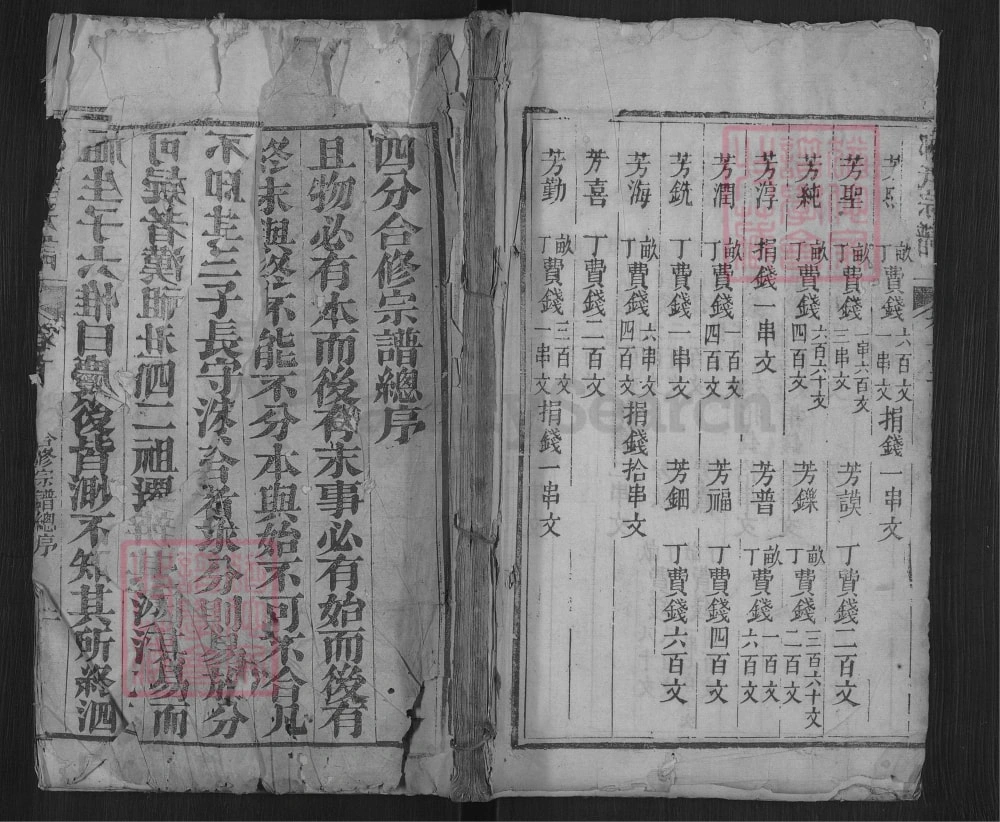 芳聖 畝丁費錢 一串六百文 三串文 芳謨 丁費錢二百文
畝丁費錢 六百文 一串文 捐錢一串文
芳純 畝丁費錢 六百六十文 四百文 芳鑠 畝丁費錢 三百六十文 二百文
芳淳 捐錢一串文 芳普 畝丁費錢 一百文 六百文
芳潤 畝丁費錢 一百文 四百文 芳福 丁費錢四百文
芳銑 丁費錢一串文 芳鈿 丁費錢六百文
芳海 畝丁費錢 六串文 四百文 捐錢拾串文
芳喜 丁費錢二百文
芳勤 畝丁費錢 三百文 一串文 捐錢一串文
四分合修宗譜總序
且物必有本而後有末事必有始而後有
終末與終不能不分本與始不可不合凡
不 三子長守 分則 分
可 者漢祖 泗二祖遷 而
生子六惟曰 後皆 不知其所終泗
合修宗譜總序